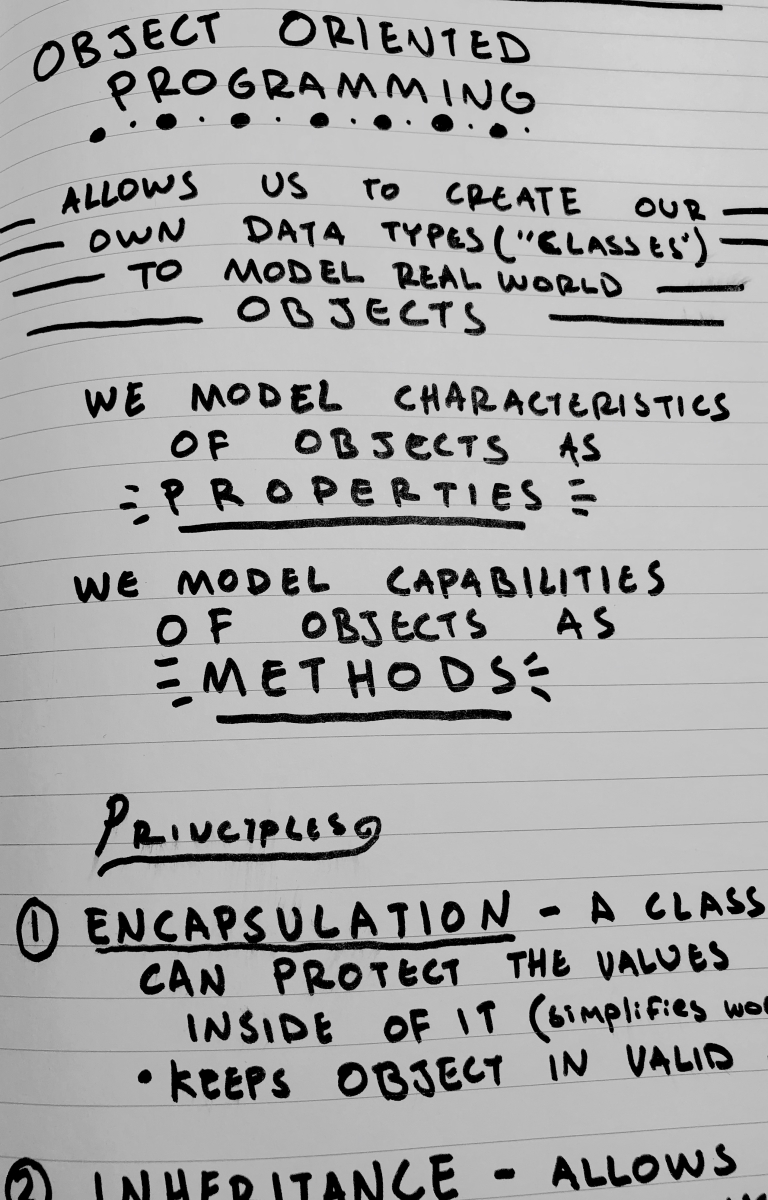 OBJECT ORIENTED
PROGRAMMING
ALLOWS US TO CREATE OUR
OWN DATA TYPES ("CLASSES")
TO MODEL REAL WORLD
OBJECTS
WE MODEL CHARACTERISTICS
OF OBJECTS AS
PROPERTIES
WE MODEL CAPABILITIES
OF OBJECTS AS
METHODS
PRINCIPLES
① ENCAPSULATION - A CLASS
CAN PROTECT THE VALUES
INSIDE OF IT (simplifies
• KEEPS OBJECT IN VALID
② INHERITANCE - ALLOWS